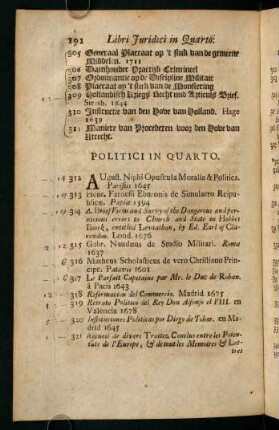 292 Libri Juridici in Quarto.
305 Generaal Placcaat op 't stuk van de gemeene
Middelen. 1711
306 Damhouder Practijk Crimineel
307 Ordonnantie op de Discipline Militair
308 Placcaet op 't stuk van de Monstering
309 Hollandisch Kriegs Recht und Articuls Brief.
Strasb. 1644
310 Instructie van den Hove van Holland. Hage
1639
311 Maniere van Procederen voor den Hove van
Utrecht.
POLITICI IN QUARTO.
312 August. Niphi Opuscula Moralia & Politica.
Parisiis 1645
313 Euonis de Simulacro Reipu-
blicæ. 1594
314 A Brief View and Survey of the Dangerous and per-
nicious errors to Church and State in Hobbes
Book, entitled Leviathan, by Ed. Earl of Cla-
rendon. Lond. 1676
315 Gabr. Naudæus de Studio Militari. Romæ
1637
316 Matheus Scholasticus de vero Christiano Prin-
cipe. Patavii 1601
317 Le Parfait Capitaine par Mr. le Duc de Rohan.
à Paris 1643
318 Reformacion del Commercio. Madrid 1675
319 Retrato Politico del Rey Don Alfonso el VIII. en
Valencia 1678
320 Institutiones Politicas por Diego de Tobar. en Ma-
drid 1645
321 Recueil de divers Traitez Conclus entre les Poten-
tats de l'Europe, & de tout les Memoires & Let-
tres